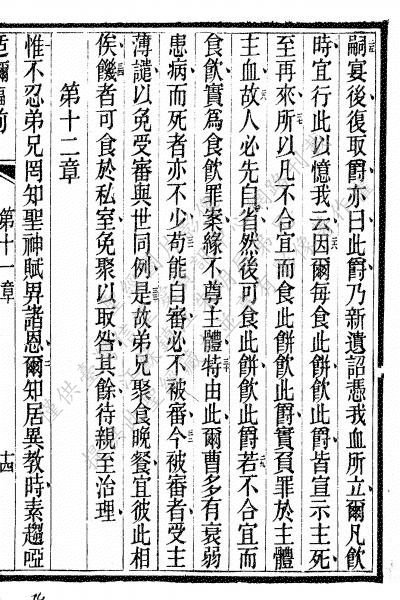 嗣宴後復取爵亦曰此爵乃新遺詔憑我血所立爾凡飲
時宜行此以憶我云因爾每食此餅飲此爵皆宣示主死
至再來所以凡不合宜而食此餅飲此爵實負罪於主體
主血故人必先自省然後可食此餅飲此爵若不合宜而
食飲實爲食飲罪案緣不尊主體特由此爾曹多有衰弱
患病而死者亦不少苟能自審必不被審今被審者受主
薄譴以免受審與世同例是故弟兄聚食晚餐宜彼此相
俟饑者可食於私室免聚以取咎其餘待親至治理
第十二章
惟不忍弟兄罔知聖神賦畀諸恩爾知居異教時素趨啞
第十一章
十四